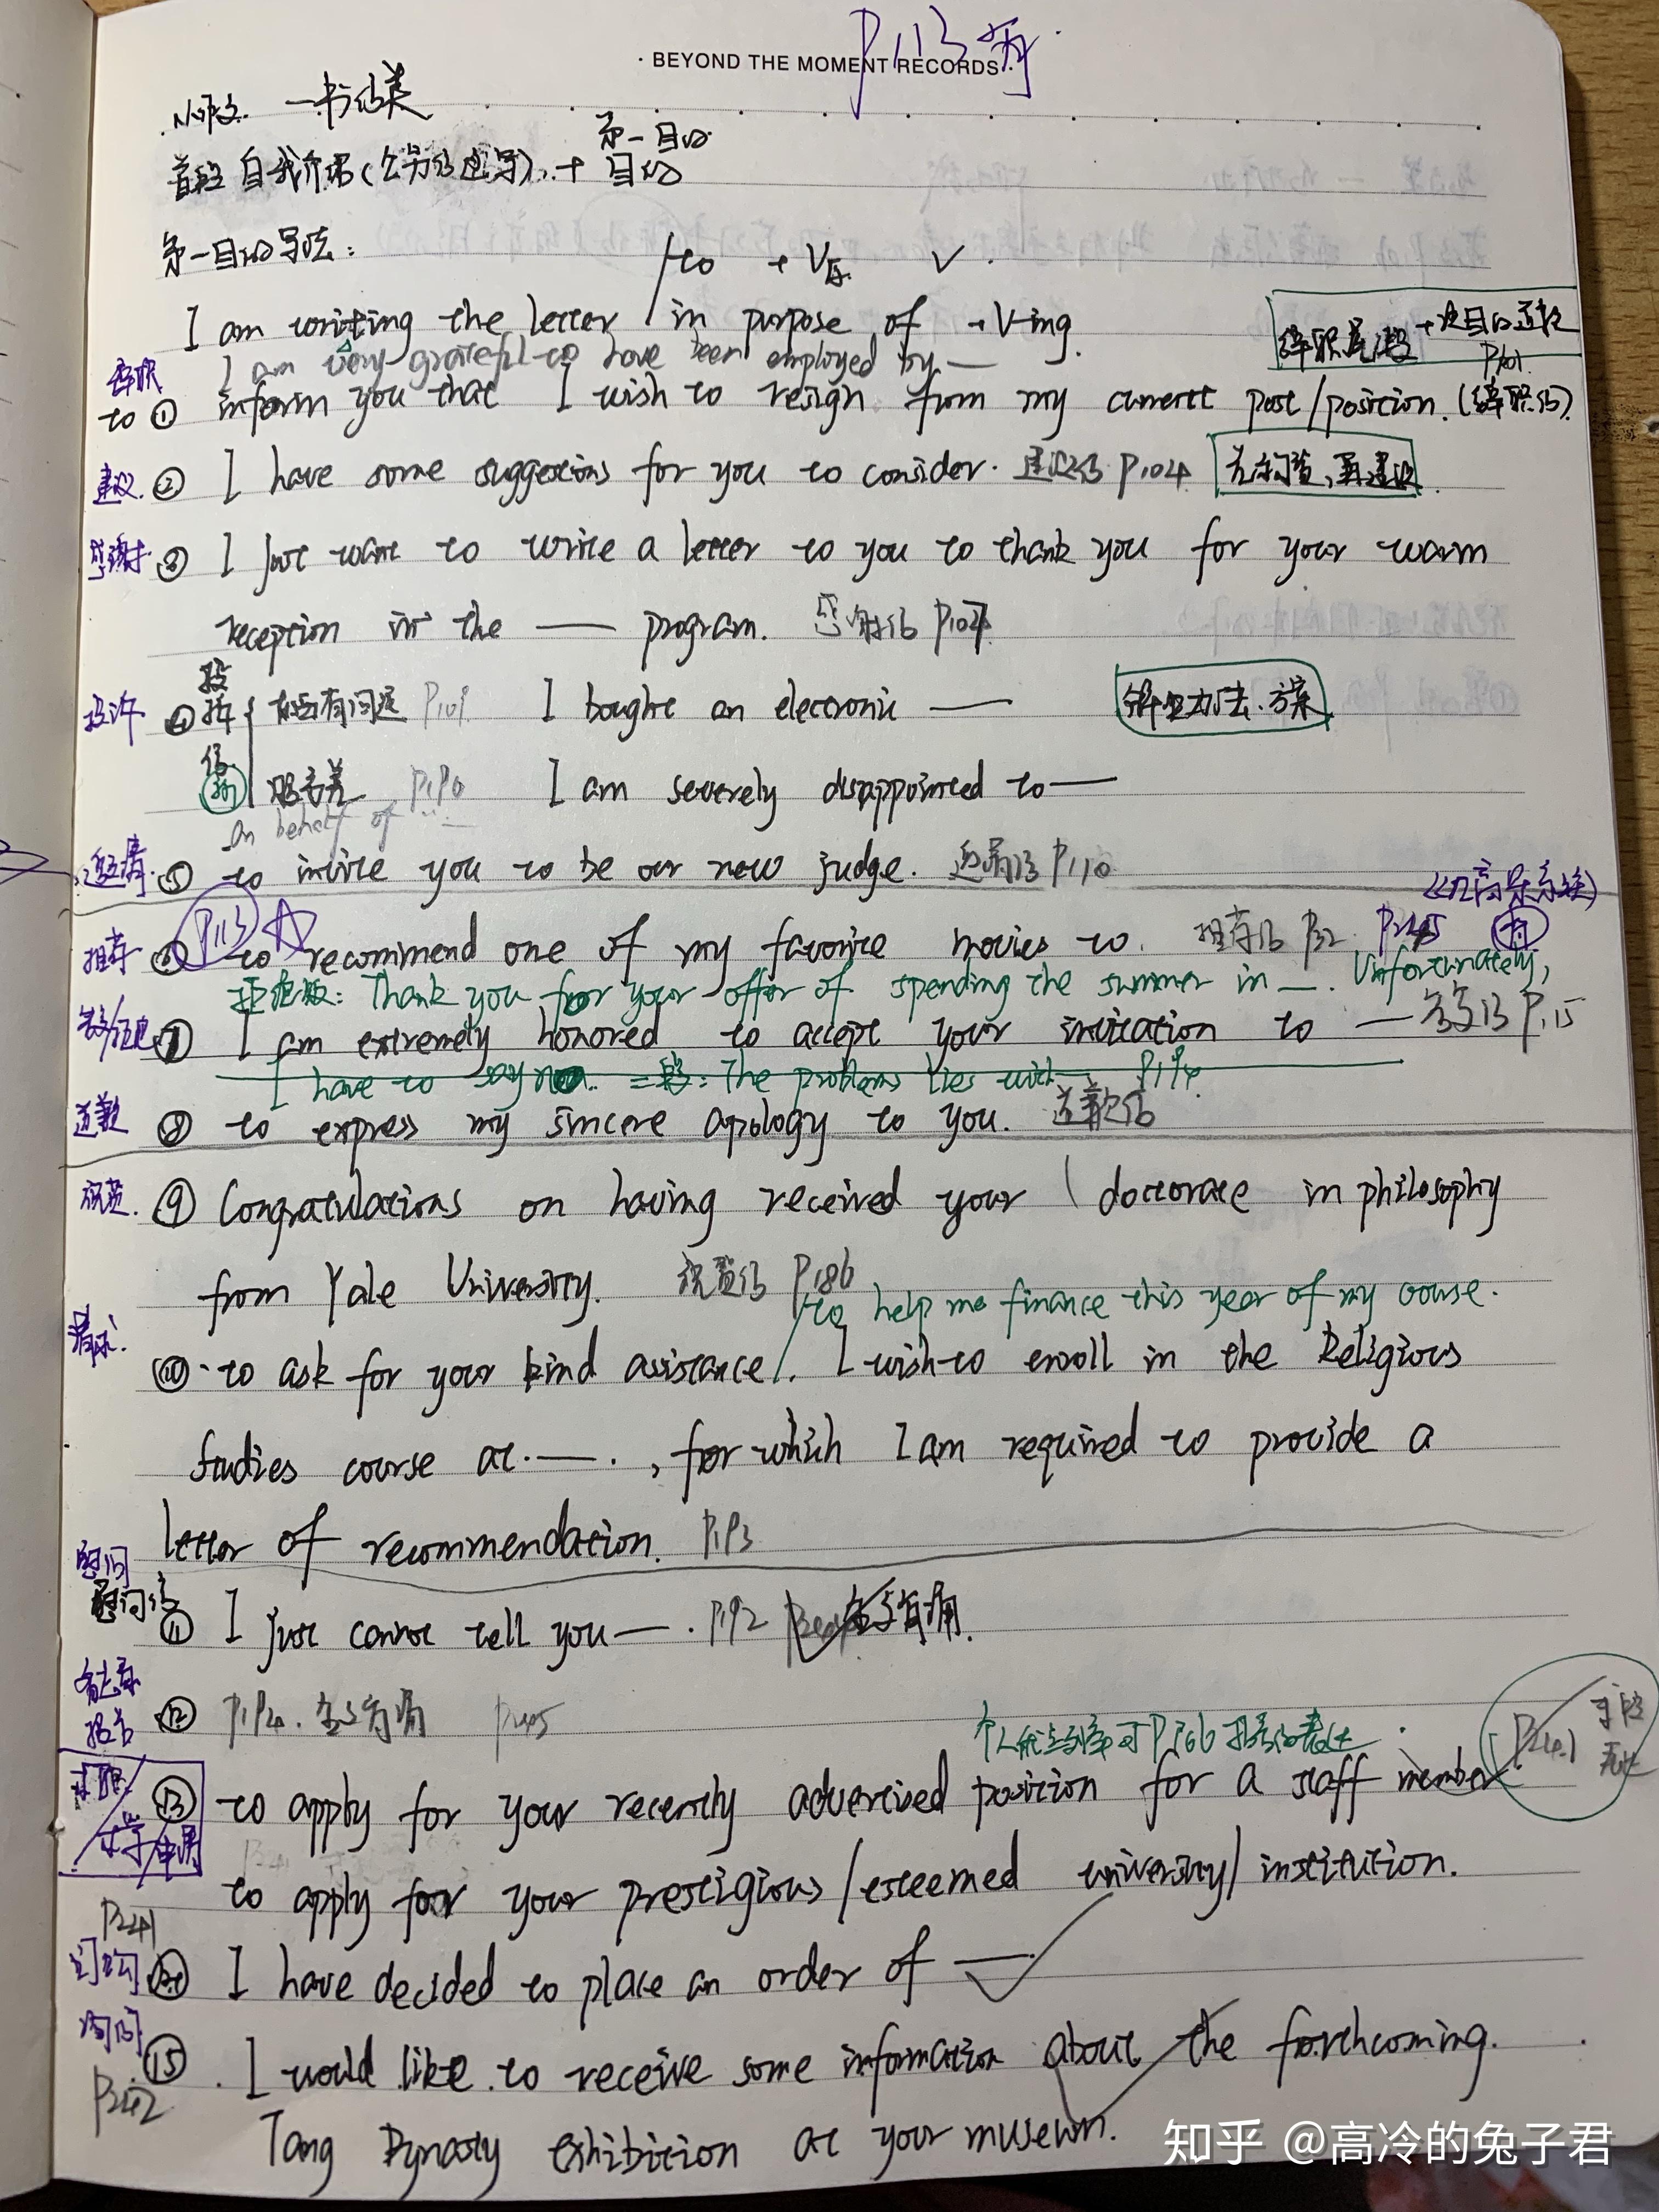 · BEYOND THE MOMENT RECORDS ·
P113有
小作文 — 书信类
首段 自我介绍(公务信必写) + 目的
第一目的
第一目的写法:
/to + V原 √.
I am writing the letter in purpose of + V-ing.
I am very grateful to have been employed by —
辞职
to ① inform you that I wish to resign from my current post/position. (辞职信)
P101
建议 ② I have some suggestions for you to consider. 建议信 P104 先问题,再建议
感谢 ③ I just want to write a letter to you to thank you for your warm
reception in the — program. 感谢信 P107
投诉 ④ 投诉信 有问题 P109 I bought an electronic — 解决办法、方案
服务差 P190 I am severely disappointed to —
on behalf of ...
邀请 ⑤ to invite you to be our new judge. 邀请信 P110
P113 ☆
推荐 ⑥ to recommend one of my favorite movies to. 推荐信 P32 P245
拒绝版: Thank you for your offer of spending the summer in —. Unfortunately,
⑦ I am extremely honored to accept your invitation to — 答复信 P115
I have to say no. The problems lies with — P194
道歉 ⑧ to express my sincere apology to you. 道歉信
祝贺 ⑨ Congratulations on having received your doctorate in philosophy
from Yale University. 祝贺信 P186
/to help me finance this year of my course.
请求 ⑩ to ask for your kind assistance/. I wish to enroll in the Religious
Studies course at — , for which I am required to provide a
letter of recommendation. P193
慰问
慰问信 ⑪ I just cannot tell you — . P192
报告 ⑫ P194. P245
P241
求职/求学/申请 ⑬ to apply for your recently advertised position for a staff member
to apply for your prestigious/esteemed university/institution.
P241
订购 ⑭ I have decided to place an order of —
询问 ⑮ I would like to receive some information about the forthcoming.
P242
Tang Dynasty exhibition at your museum.
知乎 @高冷的兔子君